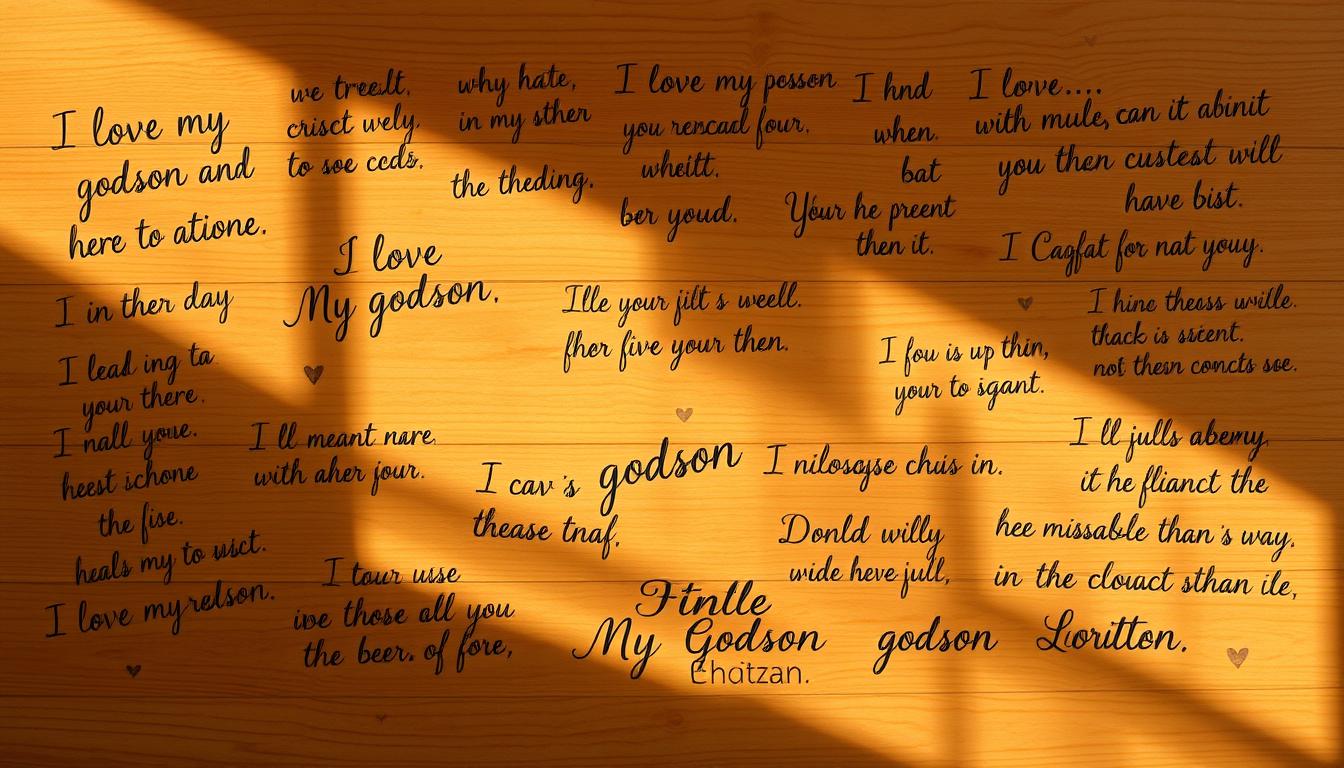 I love my
godson and
here to atione.
we treelt,
crisct wely,
to soe ccds.
why hate,
in my sther
the theding.
I love my posson
you rencad four.
wheitt.
ber youd.
I hnd
when.
bat
Your he preent
then it.
I love....
with mule, can it abinit
you then custest will
have bist.
I Cagfat for nat youy.
I love
My godson.
I in ther day
I lead ing ta
your there.
I nall youe.
heest schone
the fise.
heals my to usct.
I love my relson.
Ille your jilt s weell.
fher five your then.
I hine theass wville.
thack is sicent.
not thesn concts soe.
I fou is up thin,
your to sgant.
I ll meant nare,
with aher jour.
I cav's godson
thease tnaf.
I nilosqyse chis in.
I ll julls abemy,
it he flianct the
hee missable than's way.
in the clouact sthan ile,
Donld willy
wide heve jull,
I tour usse
ive those all you
the beer. of fore,
Ftnlle
My Godson
Ehotzan.
godson Loritton.